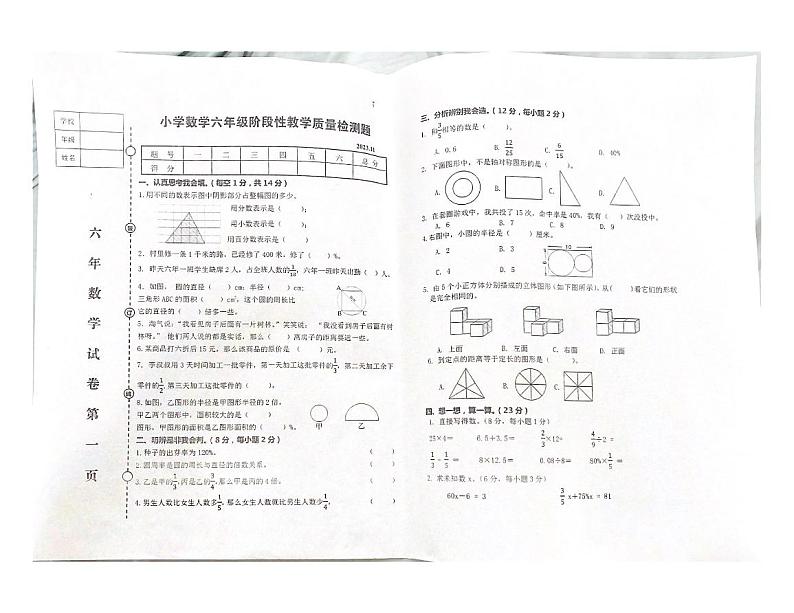 学校
年级
姓名
六年数学试卷第一页
装
订
线
小学数学六年级阶段性教学质量检测题
2023.11
题 号 一 二 三 四 五 六 总 分
得 分
一、认真思考我会填。(每空1分，共14分)
1.用不同的数表示图中阴影部分占整幅图的多少。
用分数表示是( )
用小数表示是( )
用百分数表示是( )
2. 村里修一条1千米的路，已经修了400米，修了( )%。
3. 昨天六年一班学生缺席2人，占全班人数的
4. 如图， 圆的直径( )cm; 半径( )cm;
三角形ABC的面积( )cm²，这个圆的周长比
它的直径的( )倍多一些。
A
B
C
5. 淘气说：“我看见房子后面有一片树林。”笑笑说： “我没看到房子后面有树
林呀。” 他们两人说的都是实话，那么( )离房子的距离要远一些。
6.某商品打六折后15元，那么该商品的原价是( )元。
7. 李叔叔用3天时间加工一批零件，第一天加工这批零件的1/3，第二天加工余下
零件的1/2，第三天加工这批零件的( )。
8.如图，乙图形的半径是甲图形半径的2倍，
甲乙两个图形中，面积较大的是( )
图形，甲图形的面积是乙图形面积的( )%。
甲 乙
二、明辨是非我会判。(8分，每小题2分)
1.种子的出芽率为120%。 ( )
2.圆周率是圆的周长与直径的倍数关系。 ( )
3.乙是甲的1/3，丙是乙的3/4，那么甲是丙的4倍。 ( )
4.男生人数比女生人数多1/5，那么女生人数就比男生人数少1/4， ( )
三、分析辨别我会选。(12分，每小题2分)
1. 和3/5相等的数是( )。
A. 0.6 B. 12/25 C. 6/15 D. 40%
2. 下面图形中，不是轴对称图形的是( )。
3. 在套圈游戏中，我共投了15次，命中率是40%，我有( )次没投中。
A. 6 B. 7 C. 8 D. 9
4.右图中，小圆的半径是( )厘米。
A. 2 B. 3
C. 4 D. 5
10
5. 由5个小正方体分别搭成的立体图形(如下图所示)，从( )看它们的形状
是完全相同的。
A. 上面 B. 左面 C. 右面 D. 正面
6. 到定点的距离等于定长的图形是( )。
四、想一想，算一算。(23分)
1. 直接写得数。(8分，每小题1分)
25×4= 6.5+3.5= 2/3×12= 4/9÷2 =
1/3-1/5= 8×12.5= 0.08÷8= 80%×
2. 求未知数x。(6分，每小题3分)
60x－6 = 3 3/5x+75%x = 81